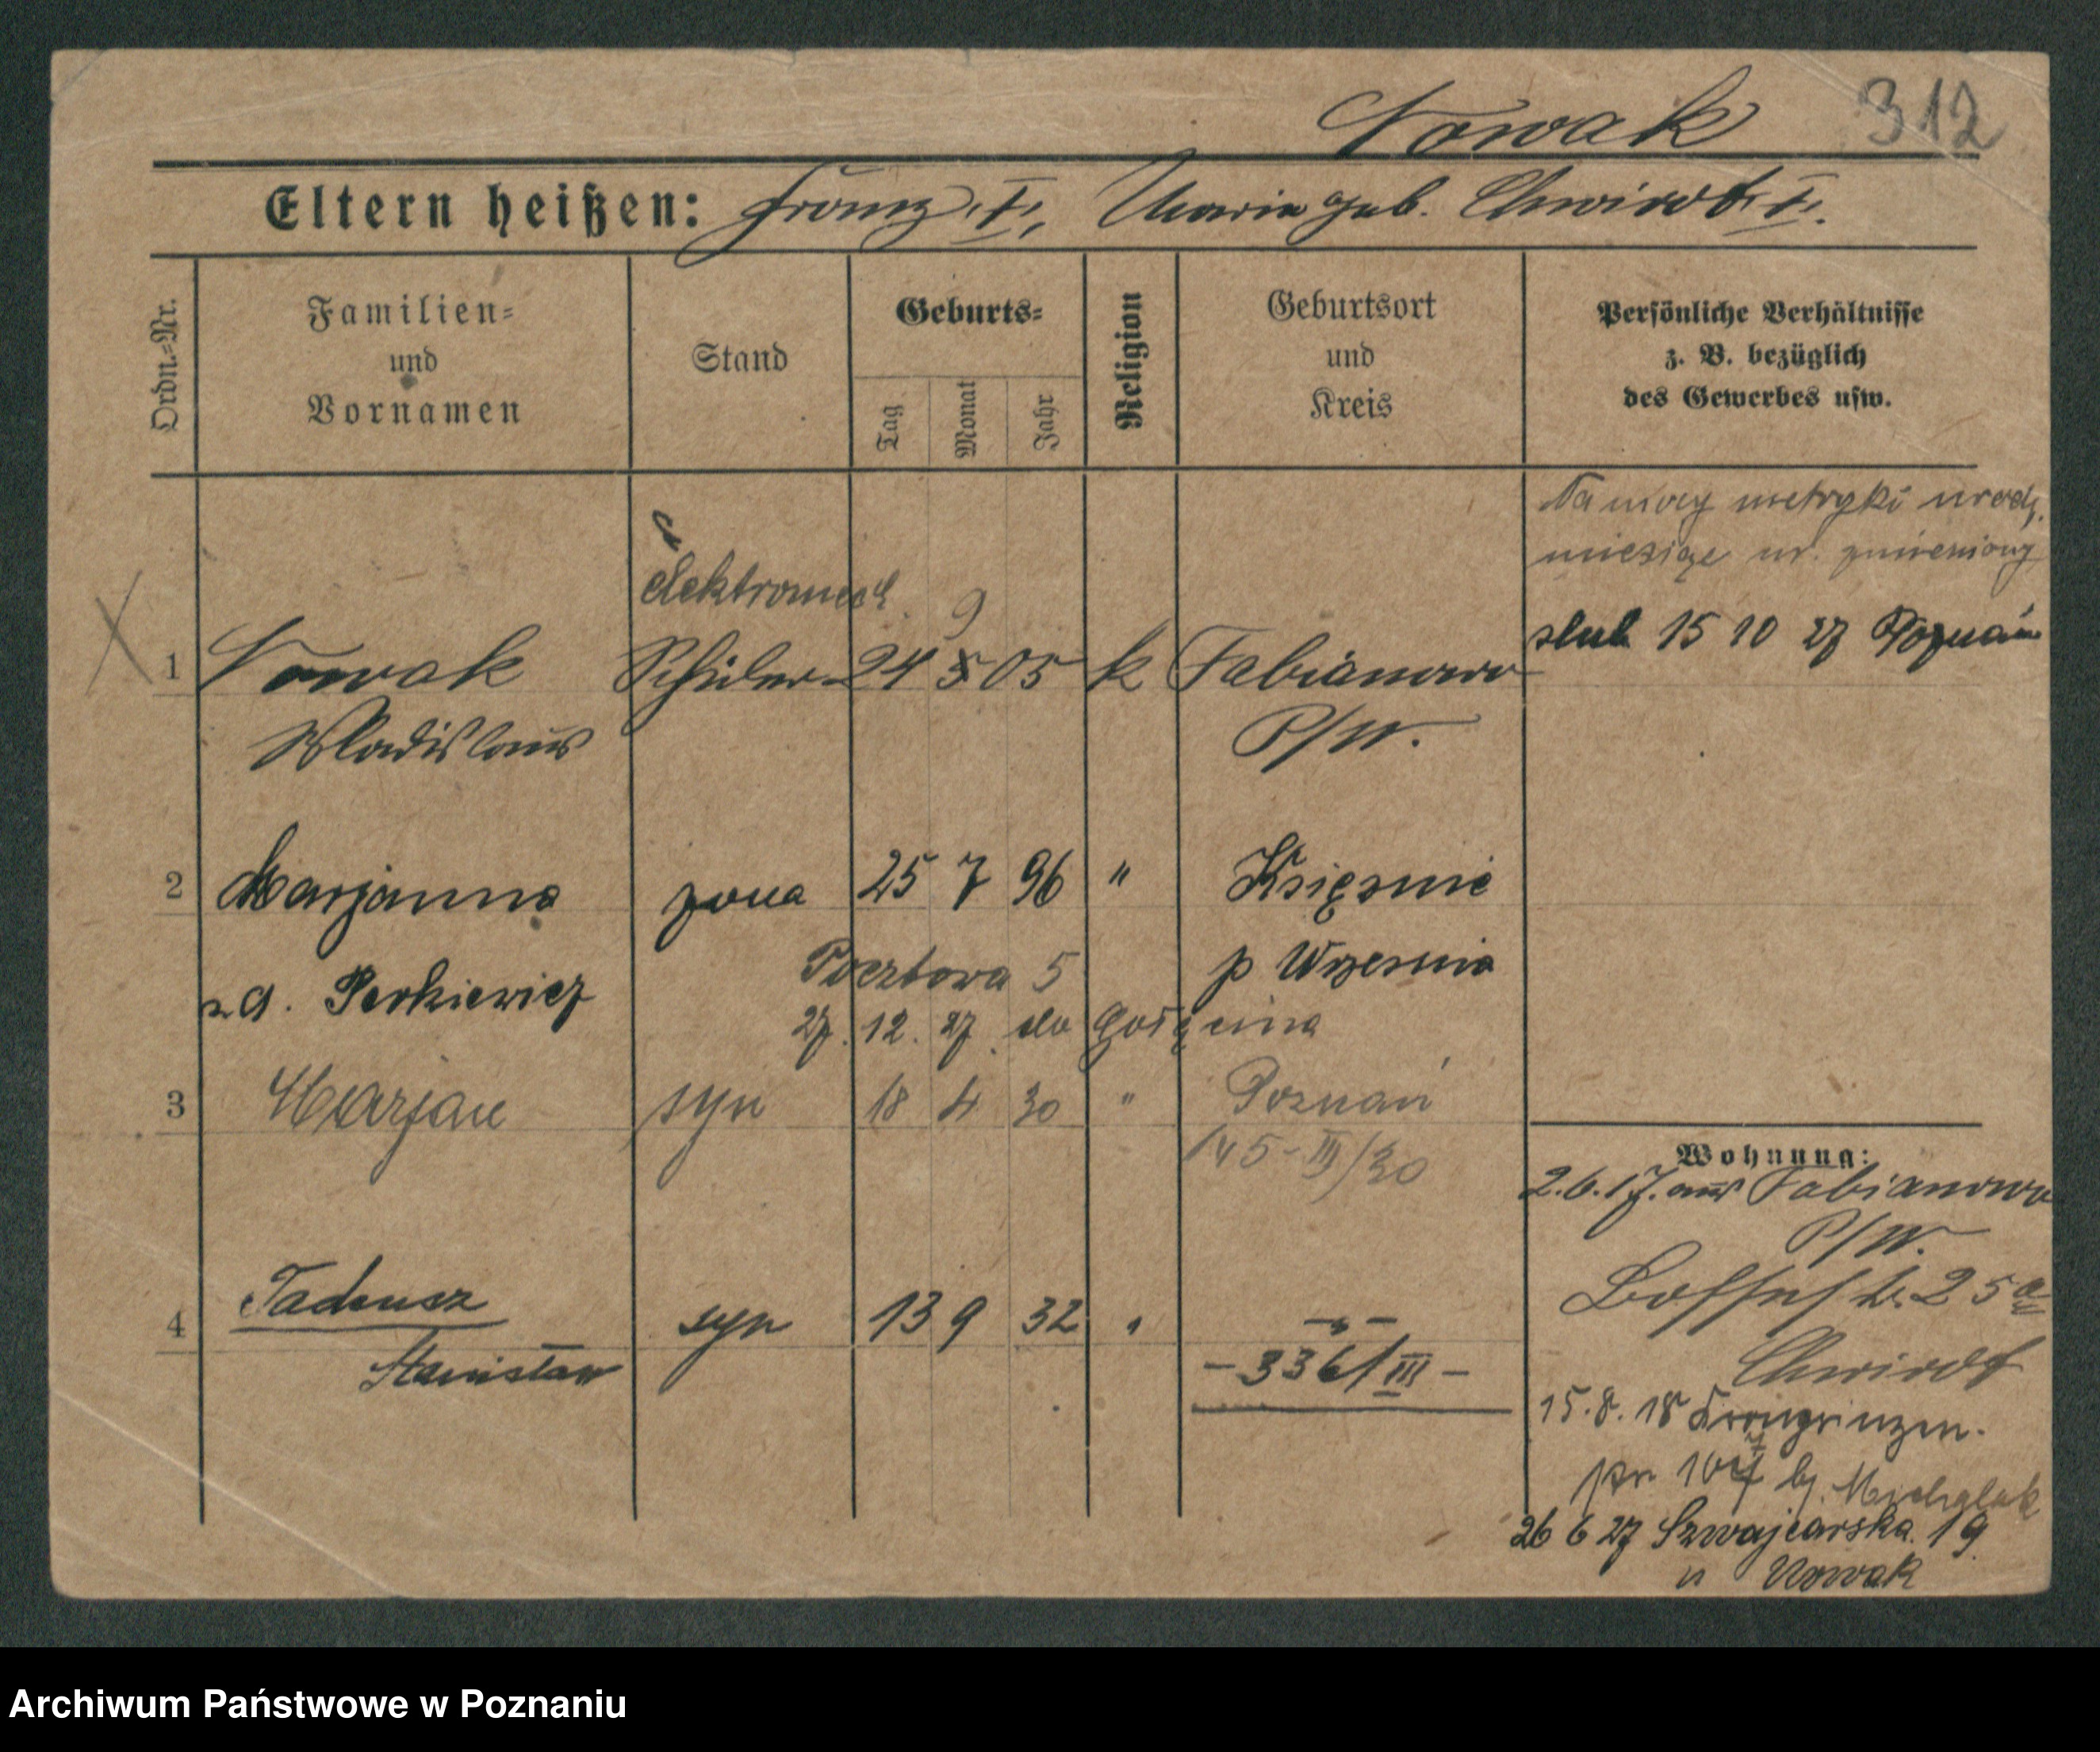 Nowak 312
Eltern heißen: Franz I, Maria geb. Chwirot I.
Ordn.=Nr.
Familien=
und
Vornamen
Stand
Geburts=
Tag
Monat
Jahr
Religion
Geburtsort
und
Kreis
Persönliche Verhältnisse
z. B. bezüglich
des Gewerbes usw.
Na mocy metryki urodz.
miesiąc ur. zmieniony
elektromech. 9
ślub 15 10 27 Poznań
1 Nowak Schüler 24 5 05 k Fabianowo
Wladislaus P/W.
2 Marjanna żona 25 7 96 " Księżnie
z d. Perkiewicz p Września
Pocztowa 5
27. 12. 27. do Gołęcina
3 Marjan syn 18 4 30 " Poznań
145-III/30
4 Tadeusz syn 13 9 32 " -"-
Stanisław -336/III-
Wohnung:
2.6.17. aus Fabianowo
P/W.
25a
Chwirot
15.8.18 Kronprinzen-
107 bj. Michalak
26 6 27 Szwajcarska 19
u Nowak
Archiwum Państwowe w Poznaniu